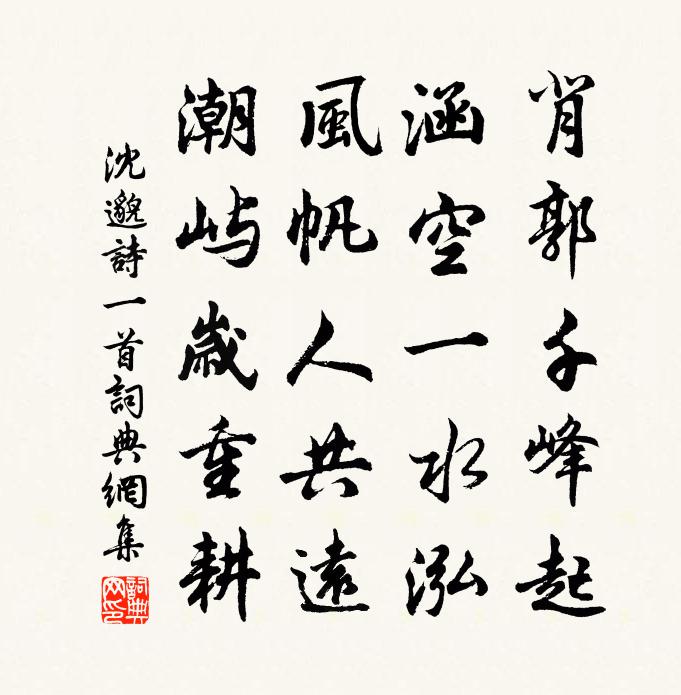 肖郭千峰起
涵空一水泓
風帆人共遠
潮屿歲重耕
沈邈詩一首詞典網集
詞典網印